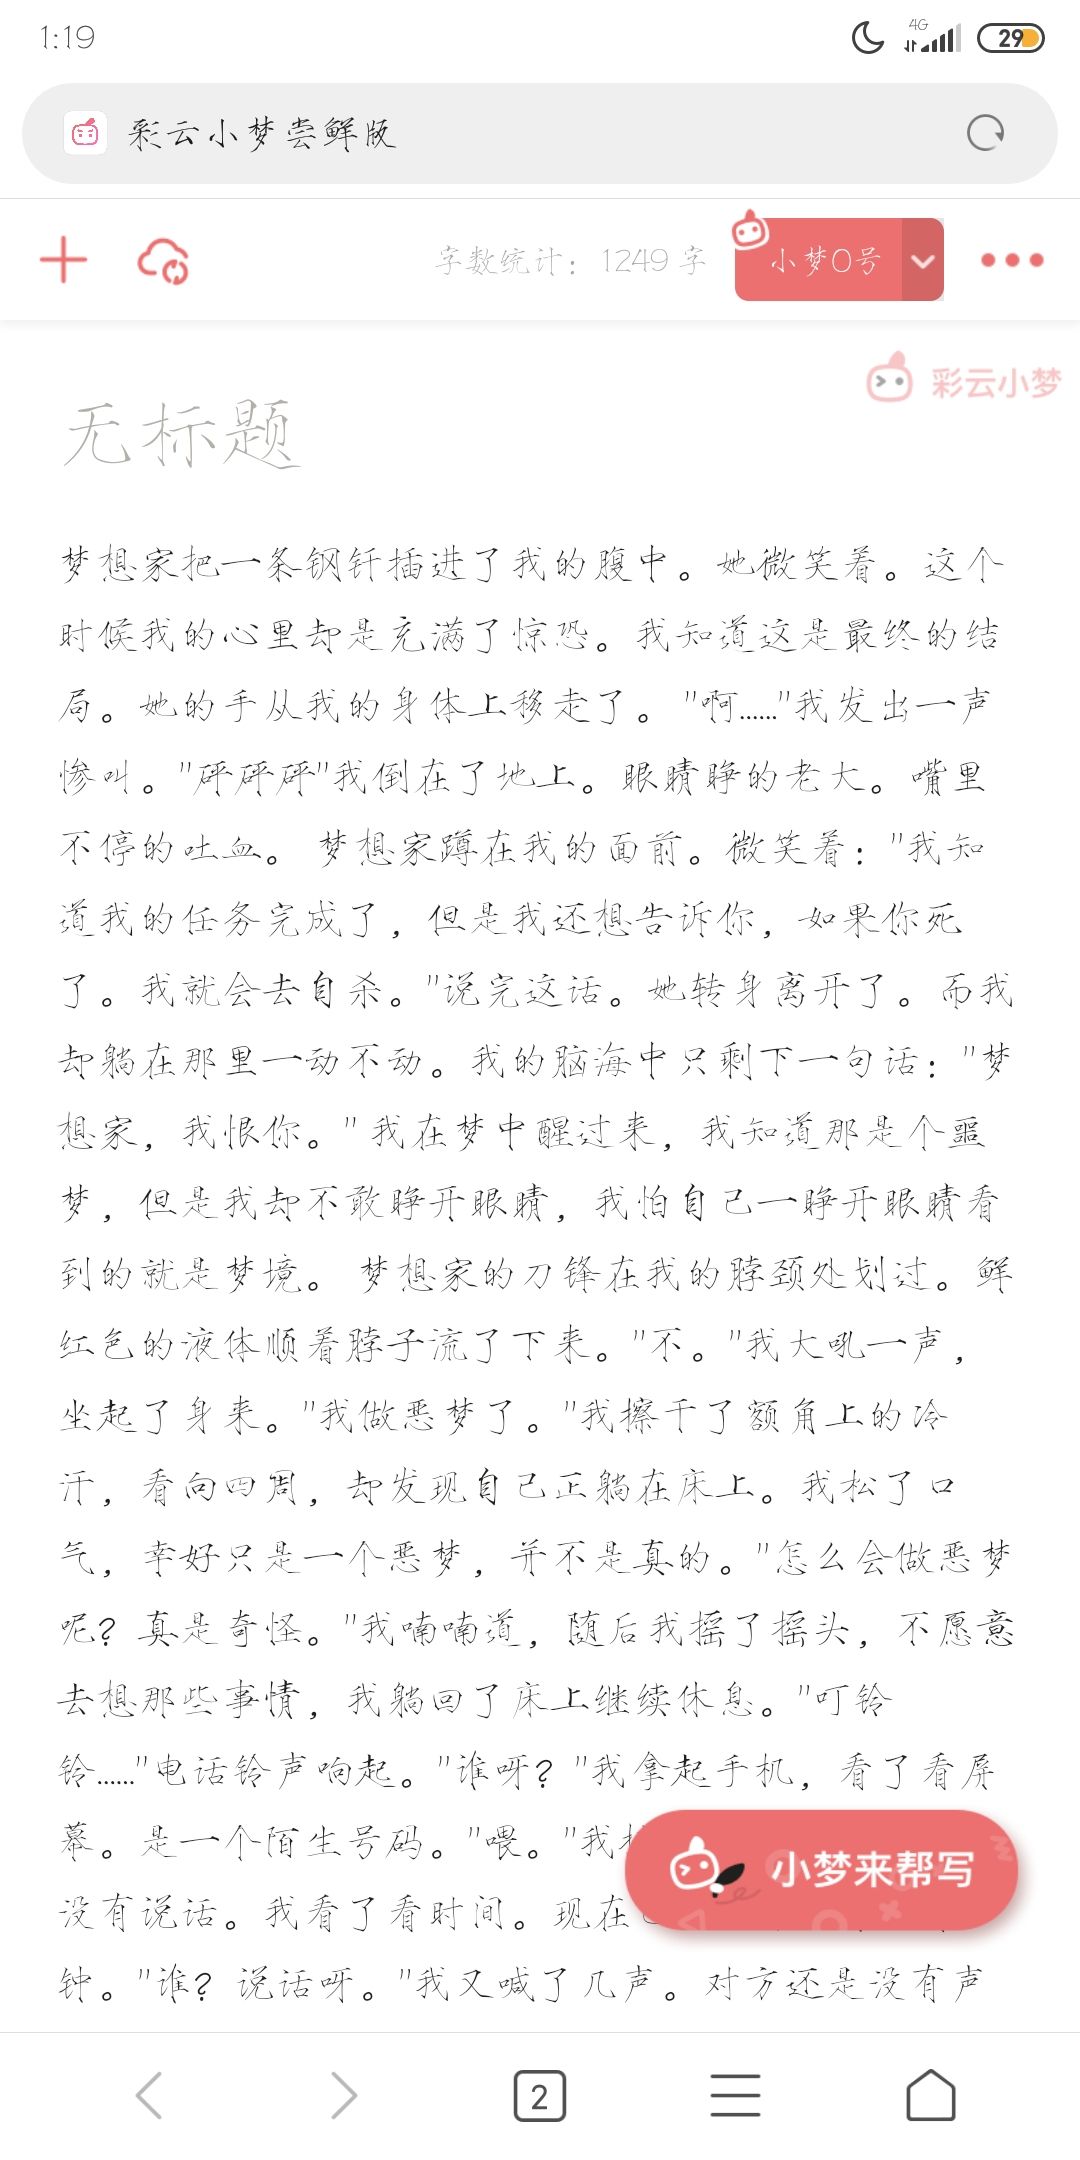 1:19
4G
29
彩云小梦尝鲜版
字数统计：1249 字
小梦0号
彩云小梦
无标题
梦想家把一条钢钎插进了我的腹中。她微笑着。这个
时候我的心里却是充满了惊恐。我知道这是最终的结
局。她的手从我的身体上移走了。 "啊……"我发出一声
惨叫。"砰砰砰"我倒在了地上。眼睛睁的老大。嘴里
不停的吐血。 梦想家蹲在我的面前。微笑着："我知
道我的任务完成了，但是我还想告诉你，如果你死
了。我就会去自杀。"说完这话。她转身离开了。而我
却躺在那里一动不动。我的脑海中只剩下一句话："梦
想家，我恨你。" 我在梦中醒过来，我知道那是个噩
梦，但是我却不敢睁开眼睛，我怕自己一睁开眼睛看
到的就是梦境。 梦想家的刀锋在我的脖颈处划过。鲜
红色的液体顺着脖子流了下来。"不。"我大吼一声，
坐起了身来。"我做恶梦了。"我擦干了额角上的冷
汗，看向四周，却发现自己正躺在床上。我松了口
气，幸好只是一个恶梦，并不是真的。"怎么会做恶梦
呢？真是奇怪。"我喃喃道，随后我摇了摇头，不愿意
去想那些事情，我躺回了床上继续休息。"叮铃
铃……"电话铃声响起。"谁呀？"我拿起手机，看了看屏
幕。是一个陌生号码。"喂。"我
没有说话。我看了看时间。现在
钟。"谁？说话呀。"我又喊了几声。对方还是没有声
小梦来帮写
2